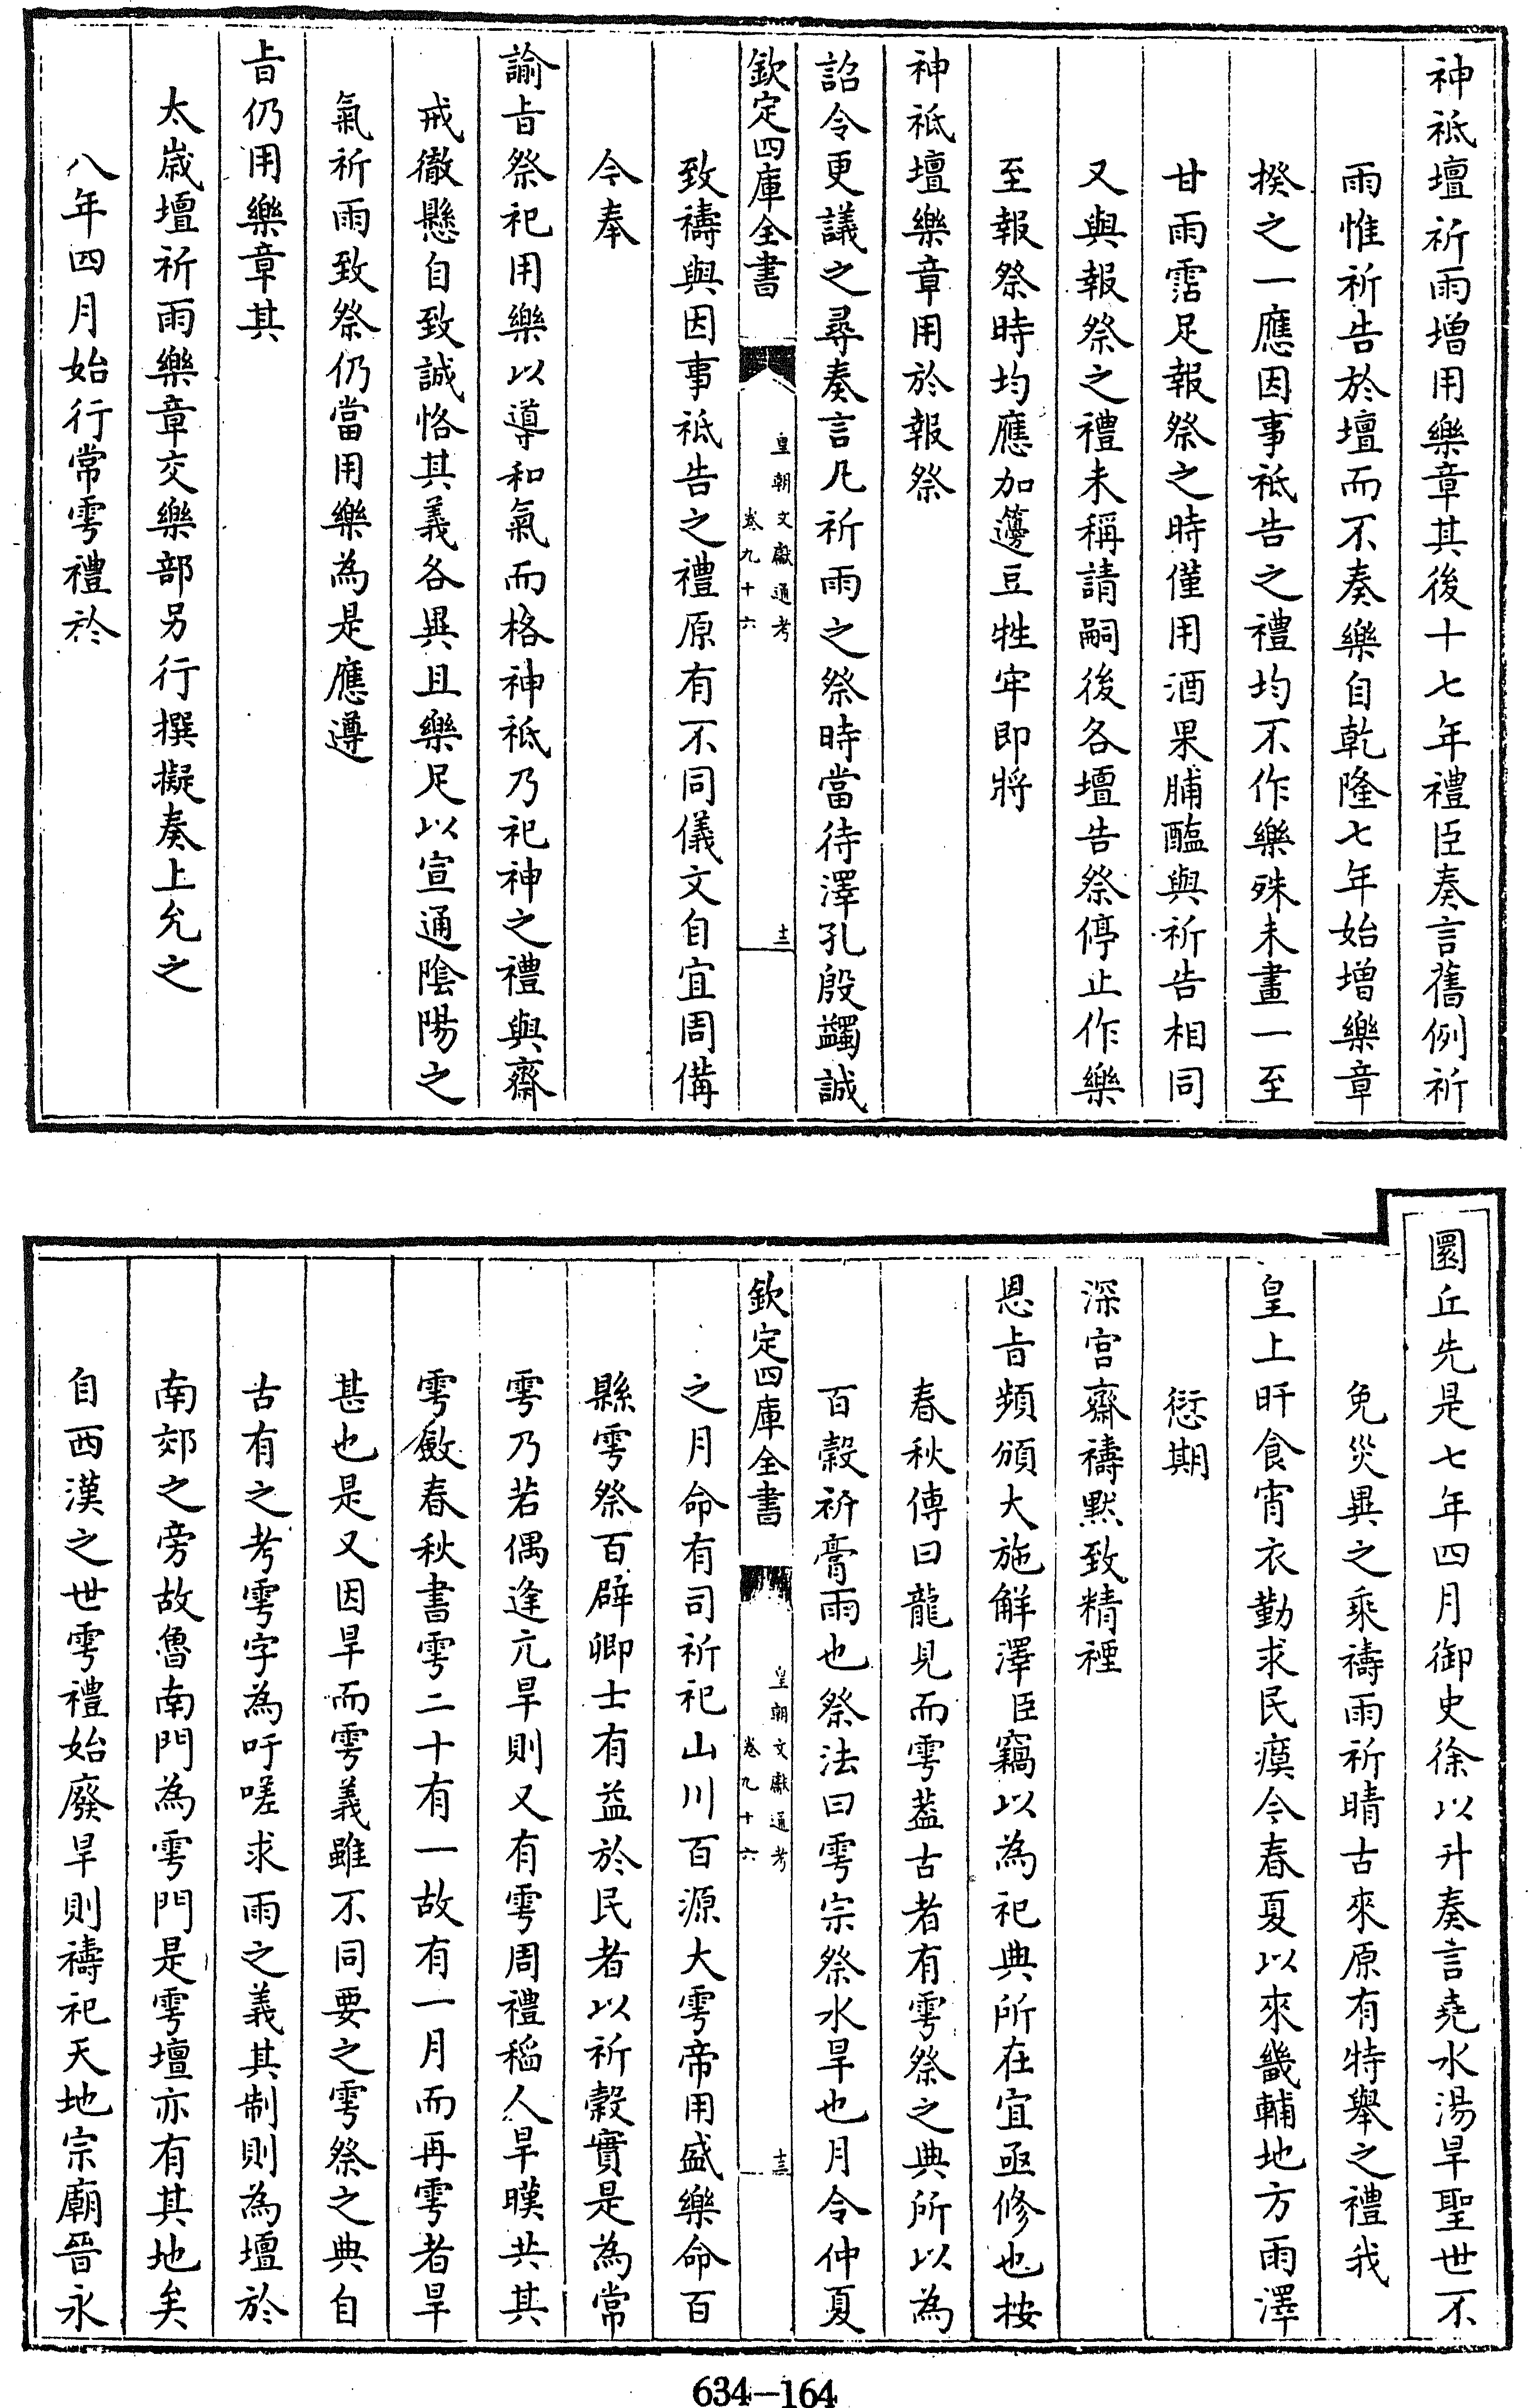 神祇壇祈雨増用樂章其後十七年禮臣奏言舊例祈
雨惟祈告於壇而不奏樂自乾隆七年始增樂章
揆之一應因事祗告之禮均不作樂殊未畫一至
甘雨霑足報祭之時僅用酒果脯醢與祈告相同
又與報祭之禮未稱請嗣後各壇告祭停止作樂
至報祭時均應加籩豆牲牢即將
神祇壇樂章用於報祭
詔令更議之尋奏言凡祈雨之祭時當待澤孔殷蠲誠
欽定四庫全書
皇朝文獻通考
卷九十六
十二
致禱與因事祗告之禮原有不同儀文自宜周備
今奉
諭旨祭祀用樂以導和氣而格神祗乃祀神之禮與齋
戒徹懸自致誠恪其義各異且樂足以宣通陰陽之
氣祈雨致祭仍當用樂為是應遵
旨仍用樂章其
太歲壇祈雨樂章交樂部另行撰擬奏上允之
八年四月始行常雩禮於
圜丘先是七年四月御史徐以升奏言堯水湯旱聖世不
免災異之乘禱雨祈晴古來原有特舉之禮我
皇上旰食宵衣勤求民瘼今春夏以來畿輔地方雨澤
愆期
深宮齋禱默致精禋
恩旨頻頒大施解澤臣竊以為祀典所在宜亟修也按
春秋傳曰龍見而雩葢古者有雩祭之典所以為
百穀祈膏雨也祭法曰雩宗祭水旱也月令仲夏
欽定四庫全書
皇朝文獻通考
卷九十六
十三
之月命有司祈祀山川百源大雩帝用盛樂命百
縣雩祭百辟卿士有益於民者以祈穀實是為常
雩乃若偶逢亢旱則又有雩周禮稻人旱暵共其
雩斂春秋書雩二十有一故有一月而再雩者旱
甚也是又因旱而雩義雖不同要之雩祭之典自
古有之考雩字為吁嗟求雨之義其制則為壇於
南郊之旁故魯南門為雩門是雩壇亦有其地矣
自西漢之世雩禮始廢旱則禱祀天地宗廟晉永
634-164